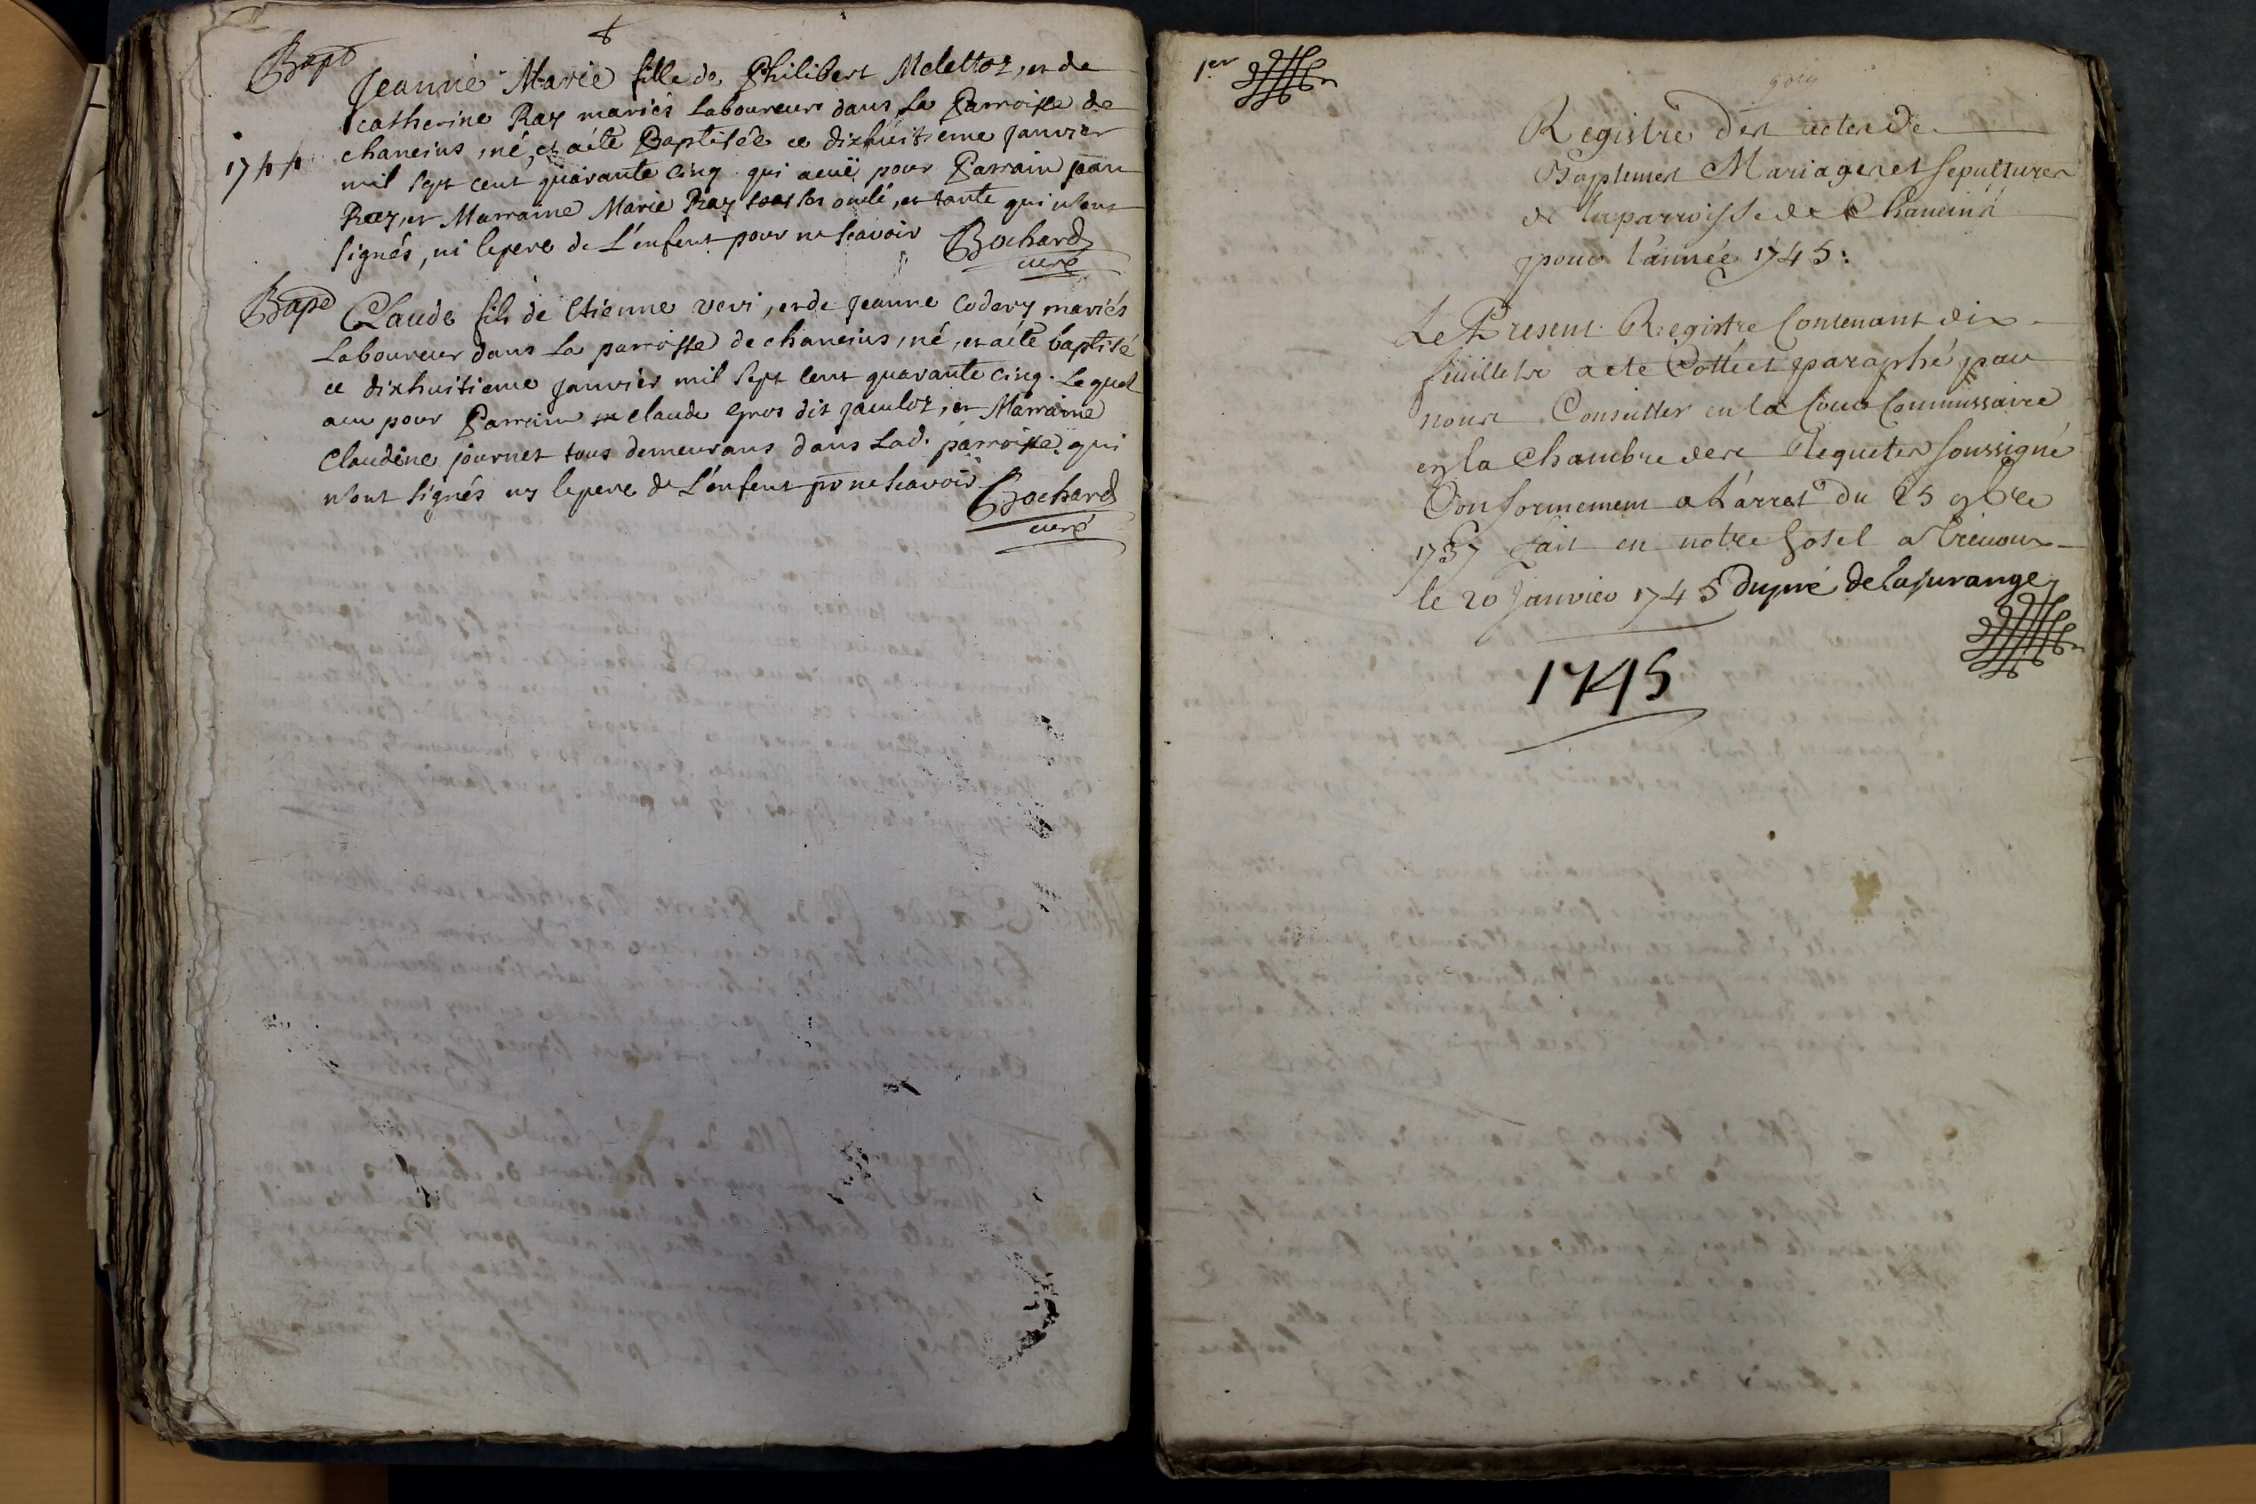 Bapt
Jeanne Marie fille de Philibert Melettoz, et de
catherine Ray mariés Laboureurs dans La Parroisse de
chaneins, né, et a été Baptisée ce dixhuitieme janvier
1744
mil sept cent quarante cinq qui a eüe pour Parrain jean
Ray, et Marraine Marie Ray ses oncle, et tante qui n'ont
signés, ni le pere de L'enfent pour ne scavoir Bochard
curé
Bapt
Claude fils de Etienne veri, et de jeanne Codery mariés
Laboureur dans La parroisse de chaneins, né, et a été baptisé
ce dixhuitieme janvier mil sept cent quarante cinq. Lequel
a eu pour Parrain claude Gros dit jaculoz, et Marraine
Claudine journet tous demeurans dans Lad. parroisse qui
n'ont signés ny le pere de L'enfent pr ne scavoir Bochard
curé
1er
Registre des actes de
Baptemes Mariages et Sepultures
de la parroisse de Chaneins
pour l'année 1745:
Le Present Registre Contenant dix
feuillets a eté Cotté et paraphé par
nous Conseiller en la Cour Commissaire
en la Chambre des Requetes soussigné
Conformement a l'arrest du 25 9bre
1737 fait en notre hotel a Trevoux
le 20 Janvier 1745 Dupré de la jurange
1745